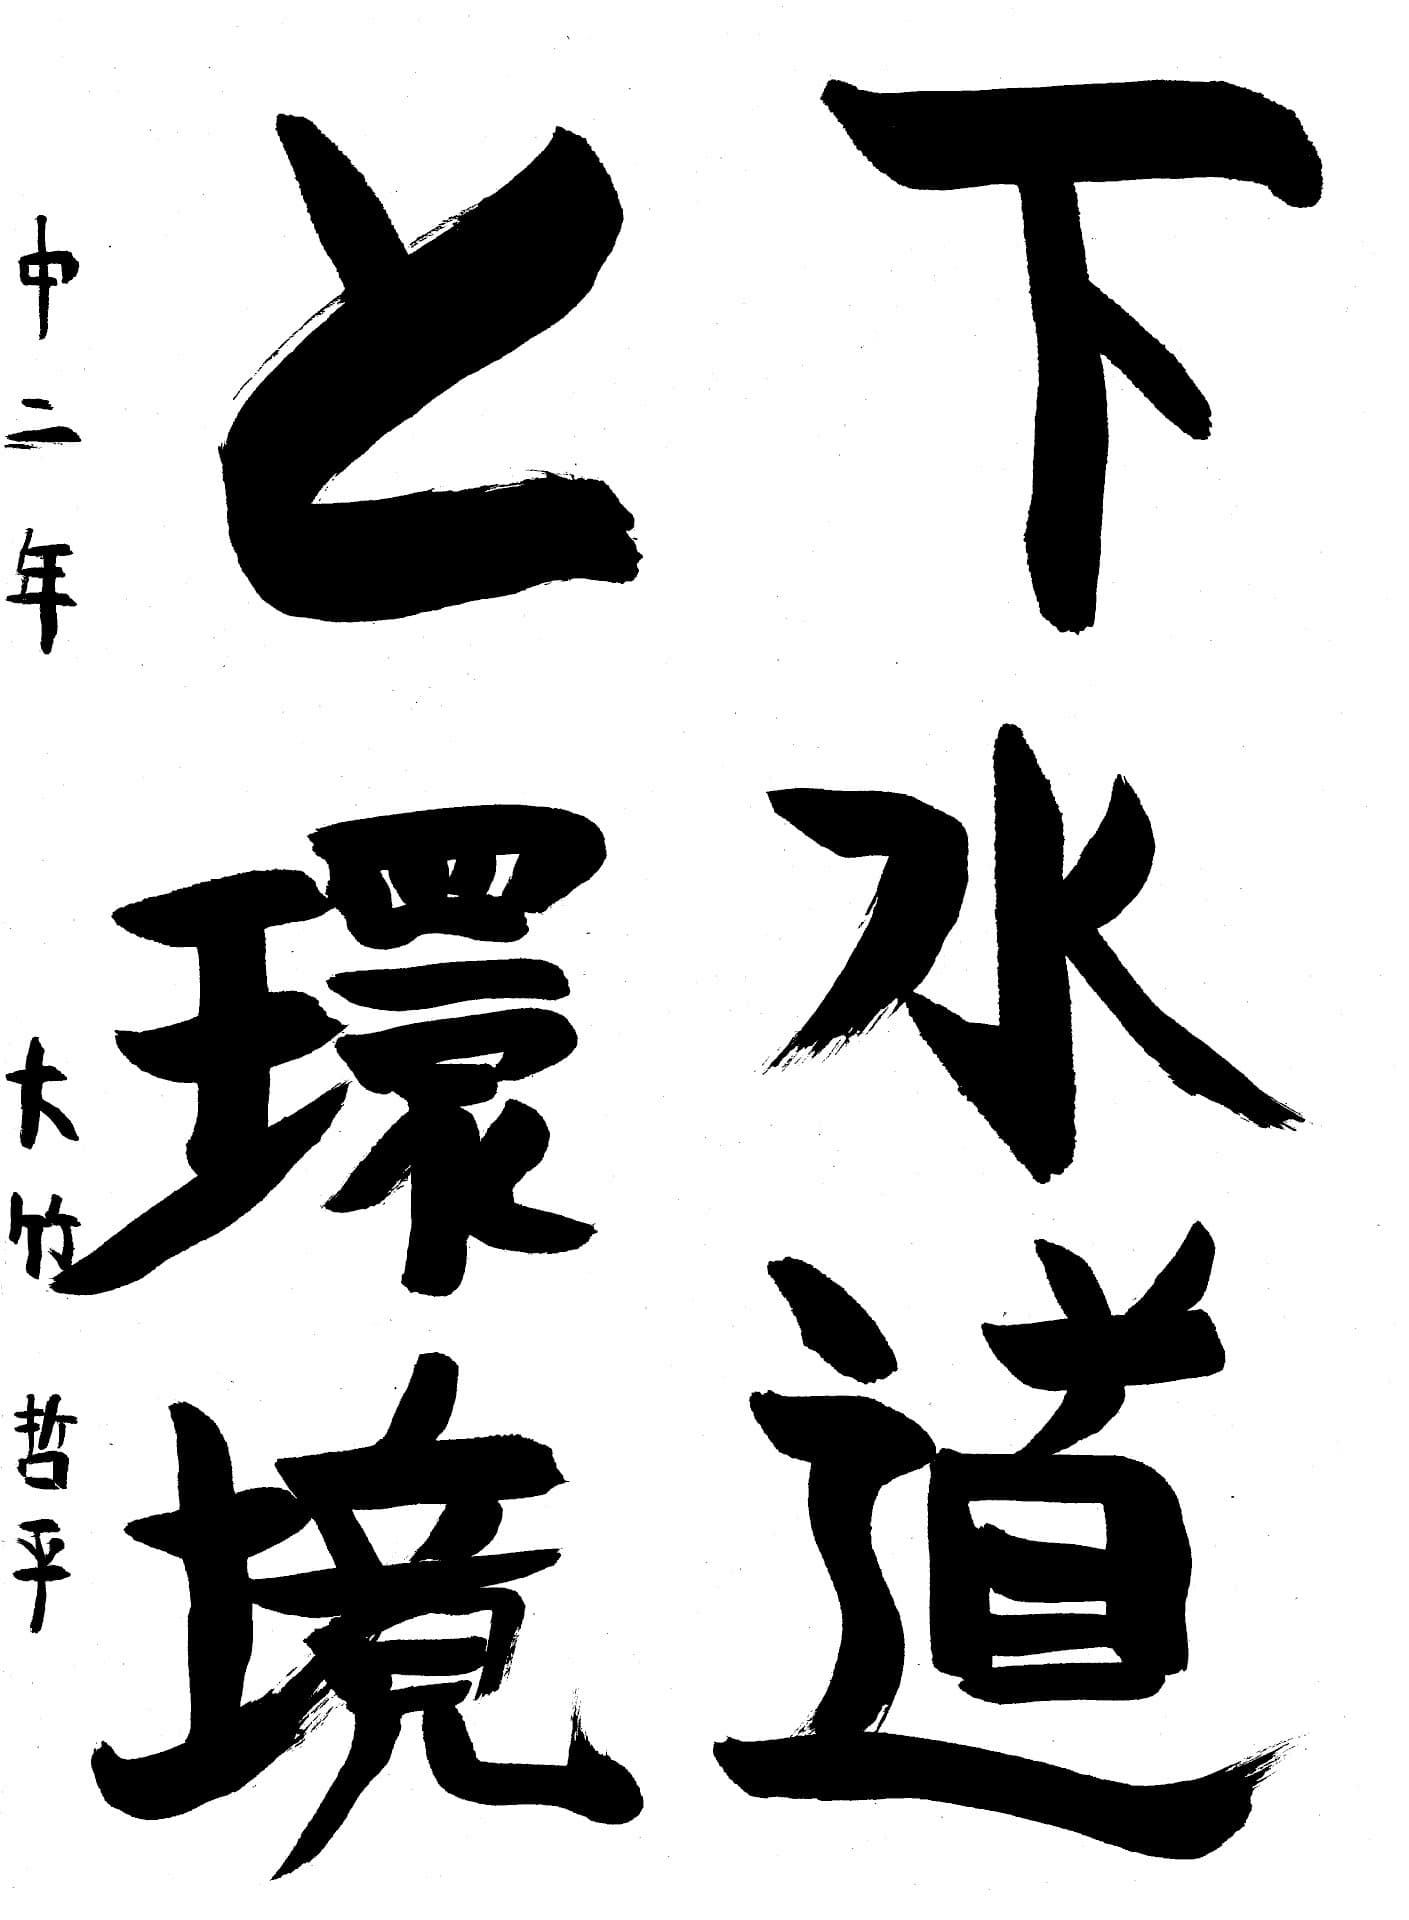 下水道
と環境
中二年 大竹哲平